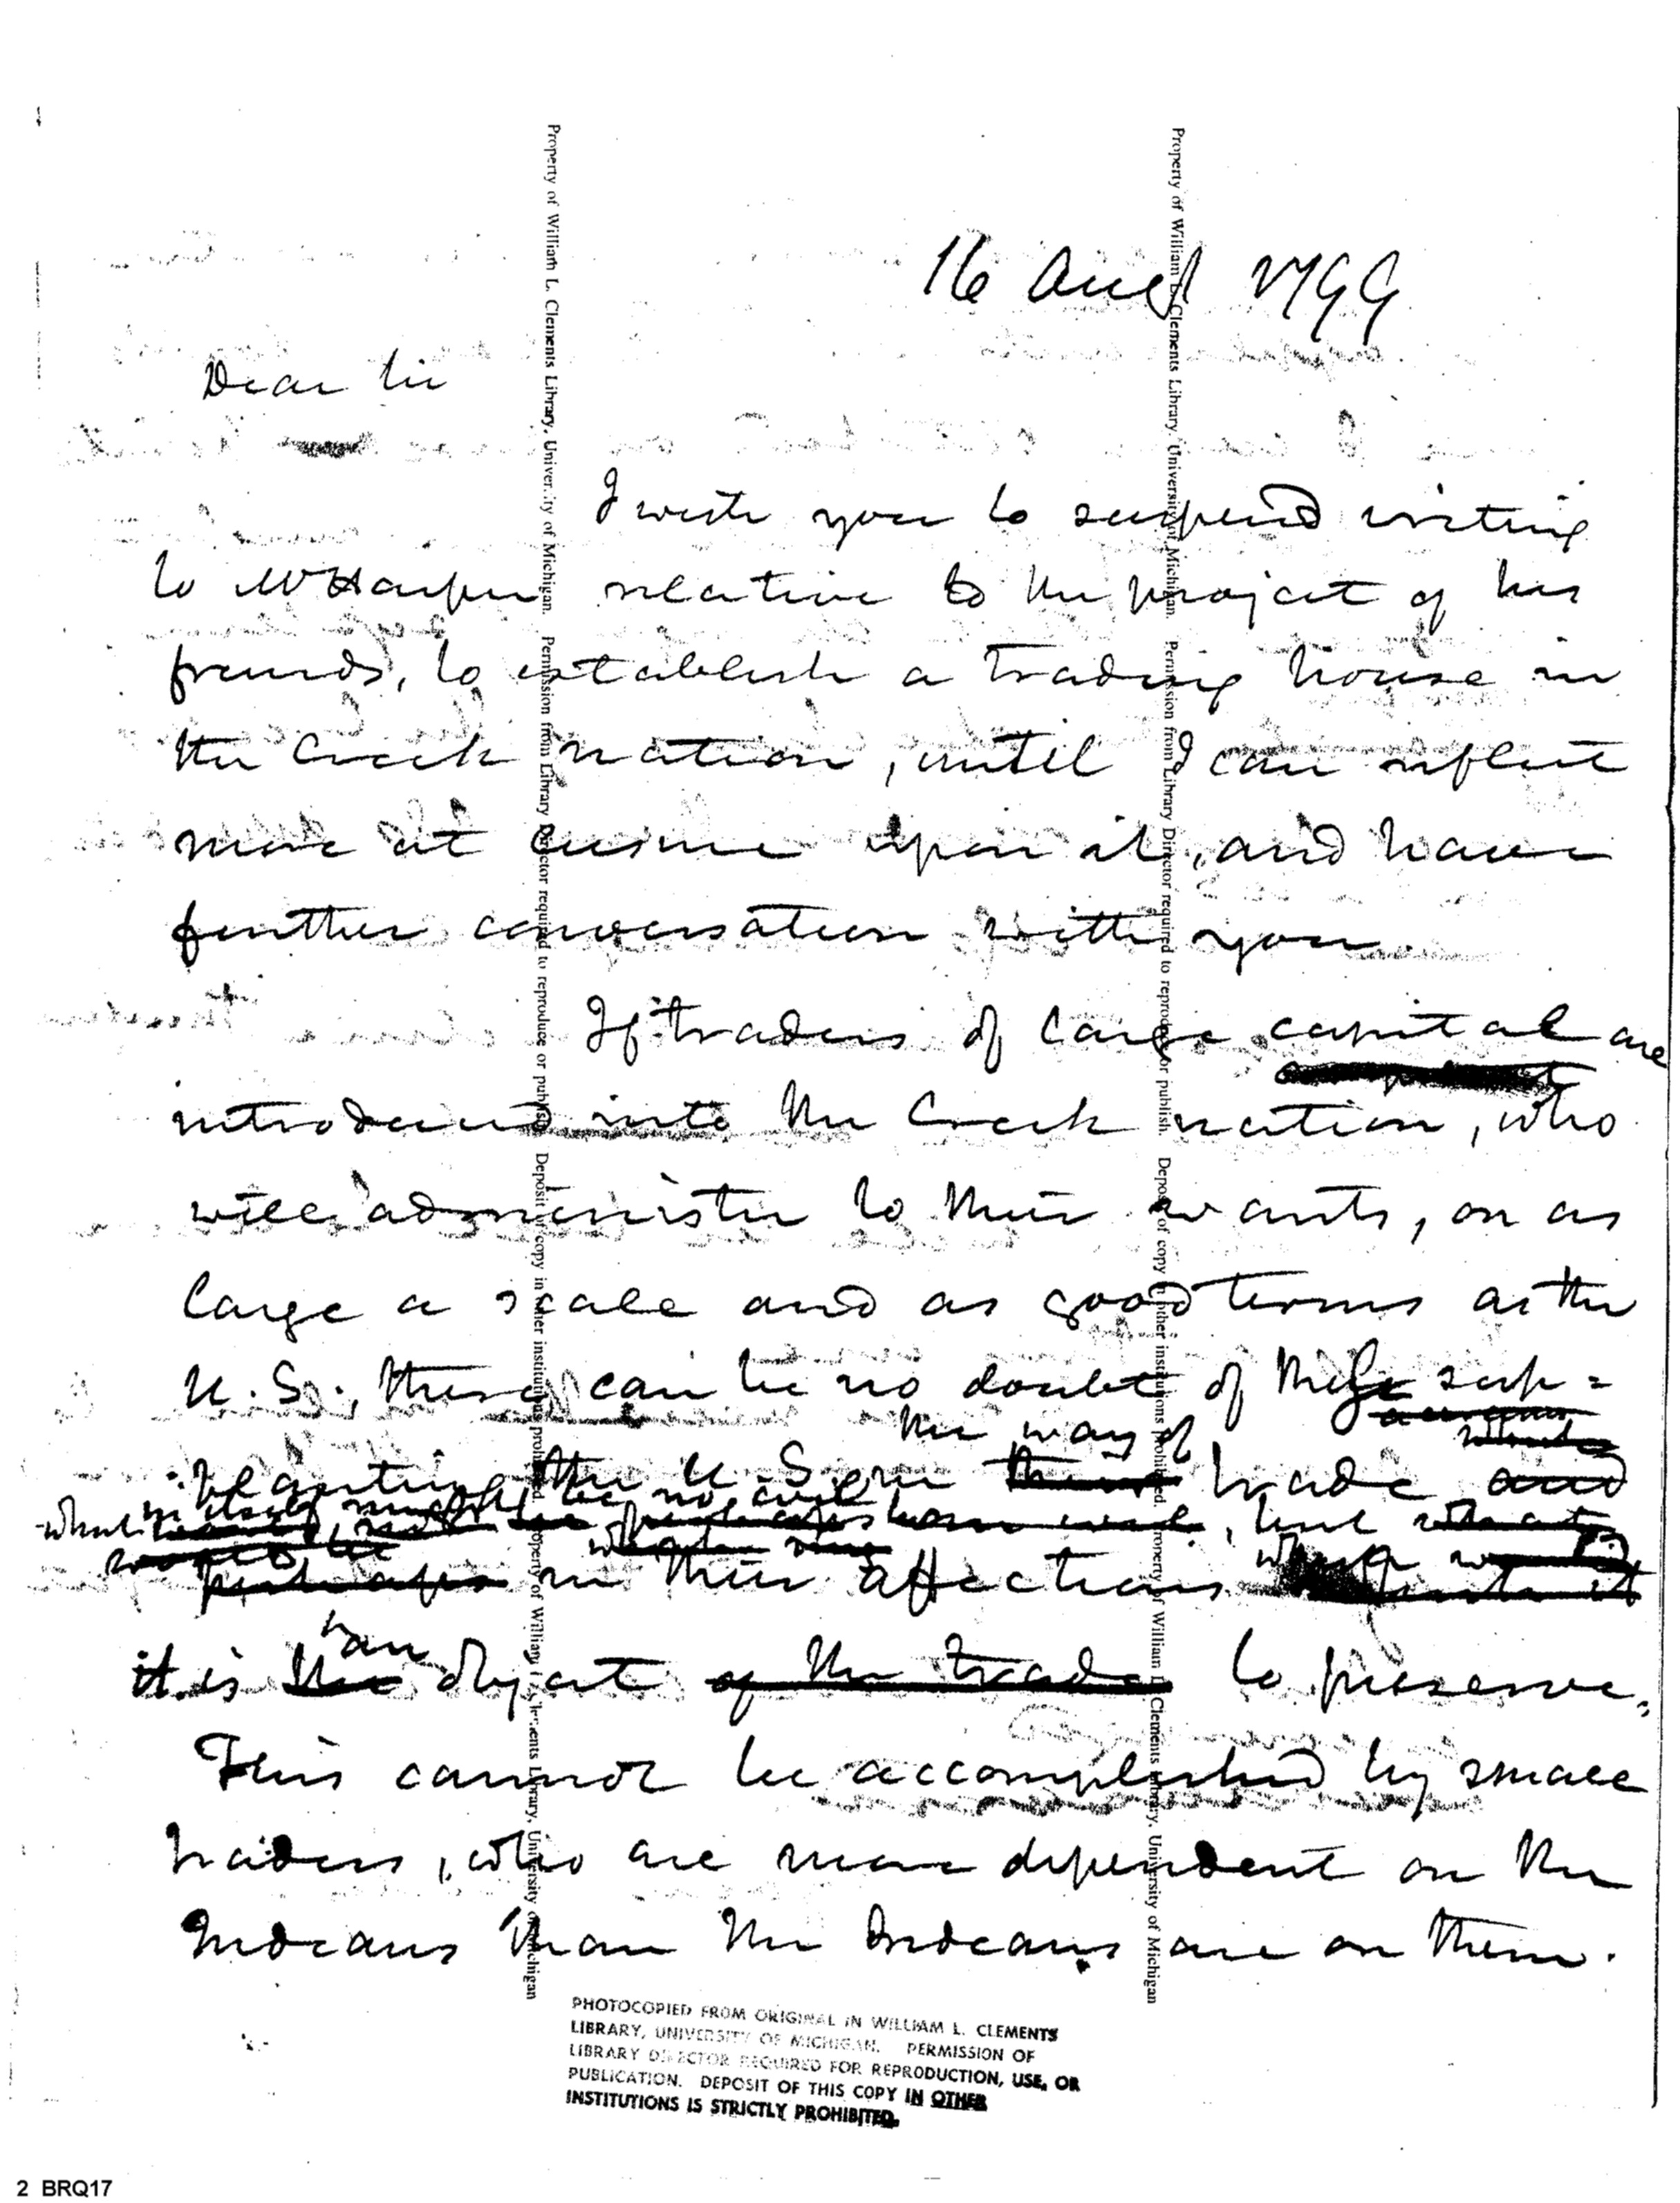 16 Augt 1799
Dear Sir
I wish you to suspend writing
to Mr Harper relative to the project of his
friends, to establish a trading house in
the Creek nation, until I can reflect
more at leisure upon it, and have
further conversation with you
If traders of large capital are
introduced into the Creek nation, who
will administer to their wants, on as
large a scale and as good terms as the
U.S., there can be no doubt of these sup=
the way of
planting the U.S. in their trade and
in itself might be no evil, but what
perhaps in their affections which
it is the an object of the trade to preserve.
This cannot be accomplished by small
traders, who are more dependent on the
Indians than the Indians are on them.
Property of William L. Clements Library, University of Michigan. Permission from Library Director required to reproduce or publish. Deposit of copy in other institutions prohibited. Property of William L. Clements Library, University of Michigan
Property of William L. Clements Library, University of Michigan. Permission from Library Director required to reproduce or publish. Deposit of copy in other institutions prohibited. Property of William L. Clements Library, University of Michigan
PHOTOCOPIED FROM ORIGINAL IN WILLIAM L. CLEMENTS
LIBRARY, UNIVERSITY OF MICHIGAN. PERMISSION OF
LIBRARY DIRECTOR REQUIRED FOR REPRODUCTION, USE, OR
PUBLICATION. DEPOSIT OF THIS COPY IN OTHER
INSTITUTIONS IS STRICTLY PROHIBITED.
2 BRQ17